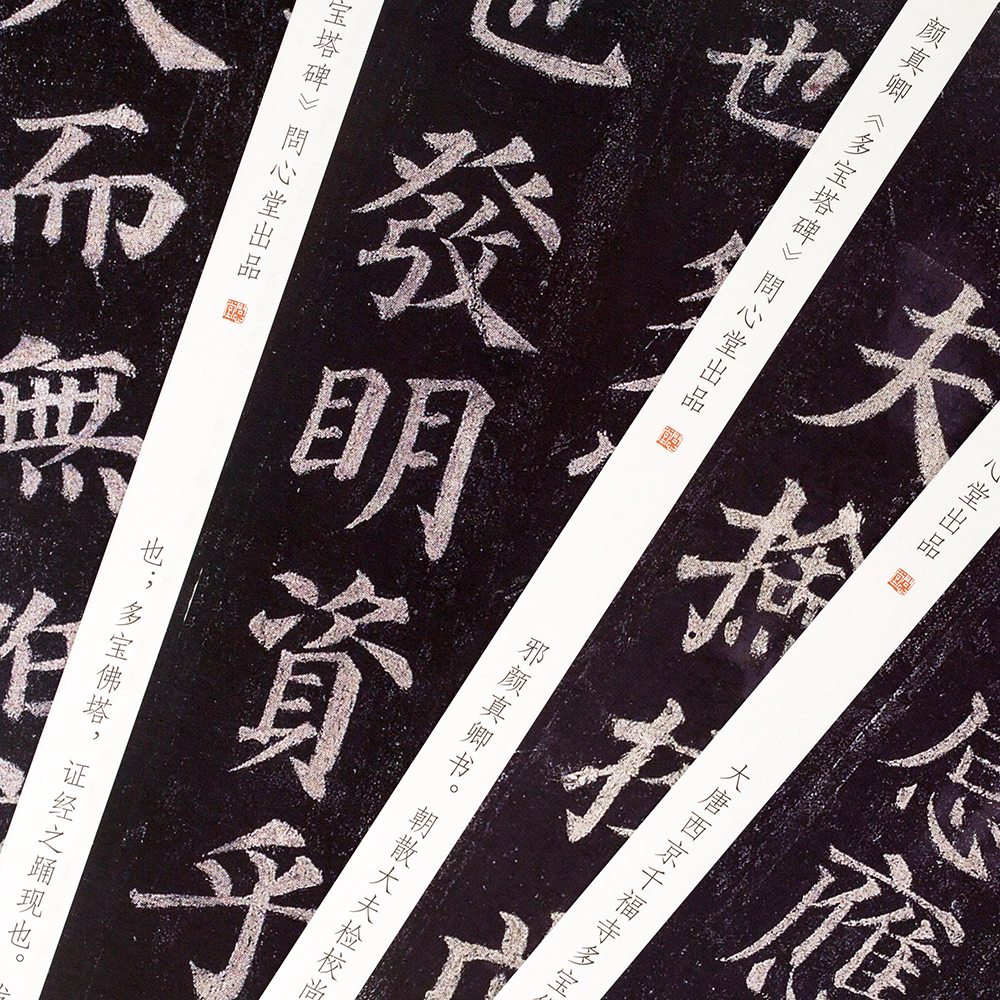 而無
宝塔碑》問心堂出品
也；多宝佛塔，证经之踊现也。
也
發明資乎
也
颜真卿《多宝塔碑》問心堂出品
邪颜真卿书。朝散大夫检校尚
夫撿校
心堂出品
大唐西京千福寺多宝佛
忽應